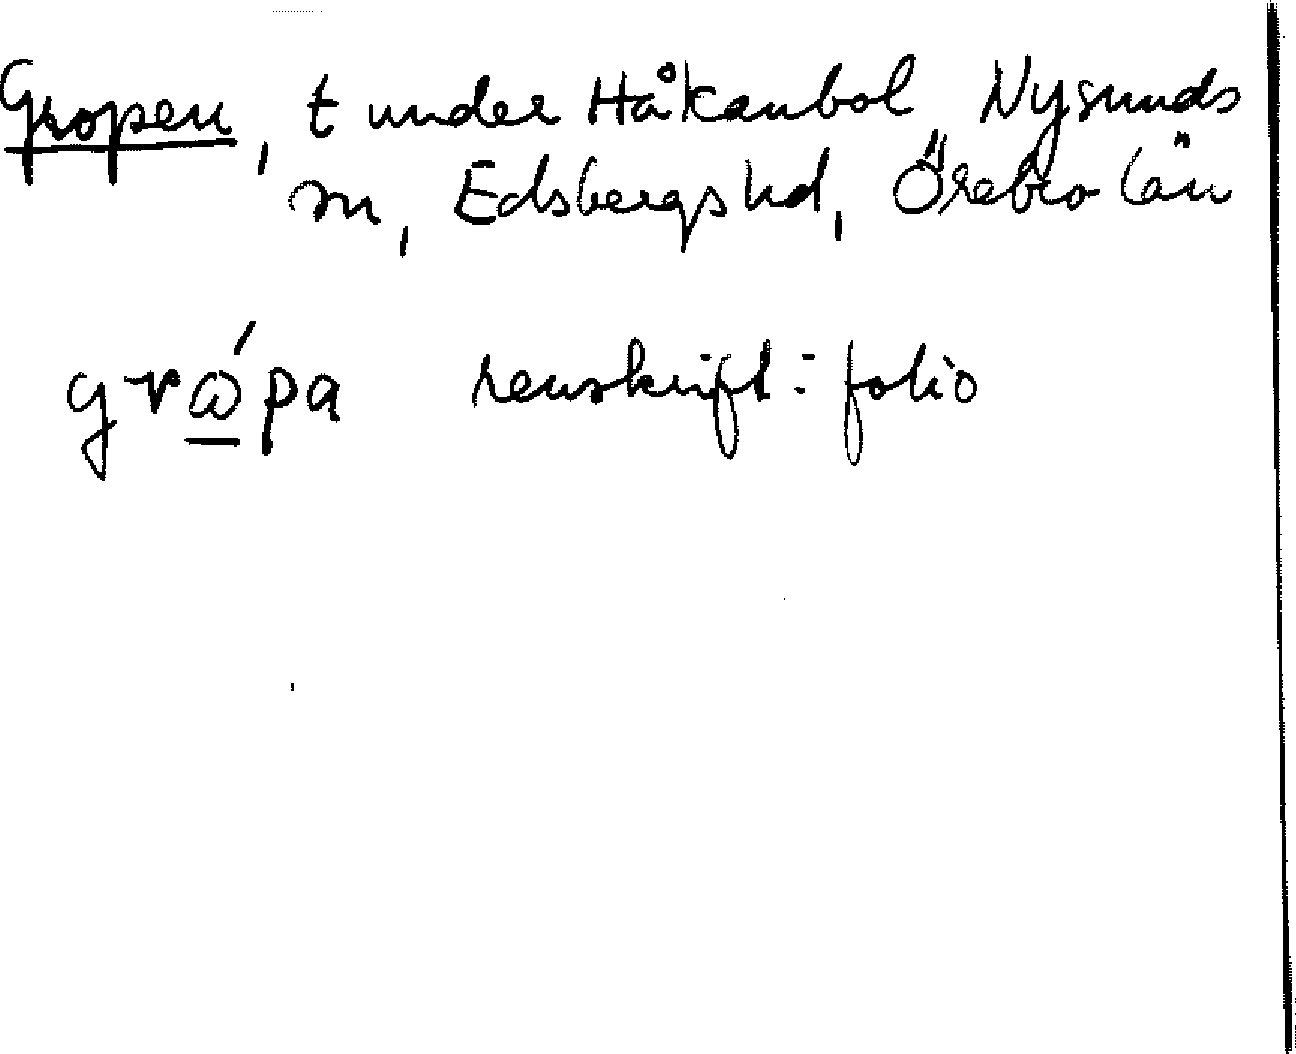 Gropen, t under Håkanbol Nysunds
sn, Edsbergs hd, Örebro län
grώ̲pa renskrift: folio